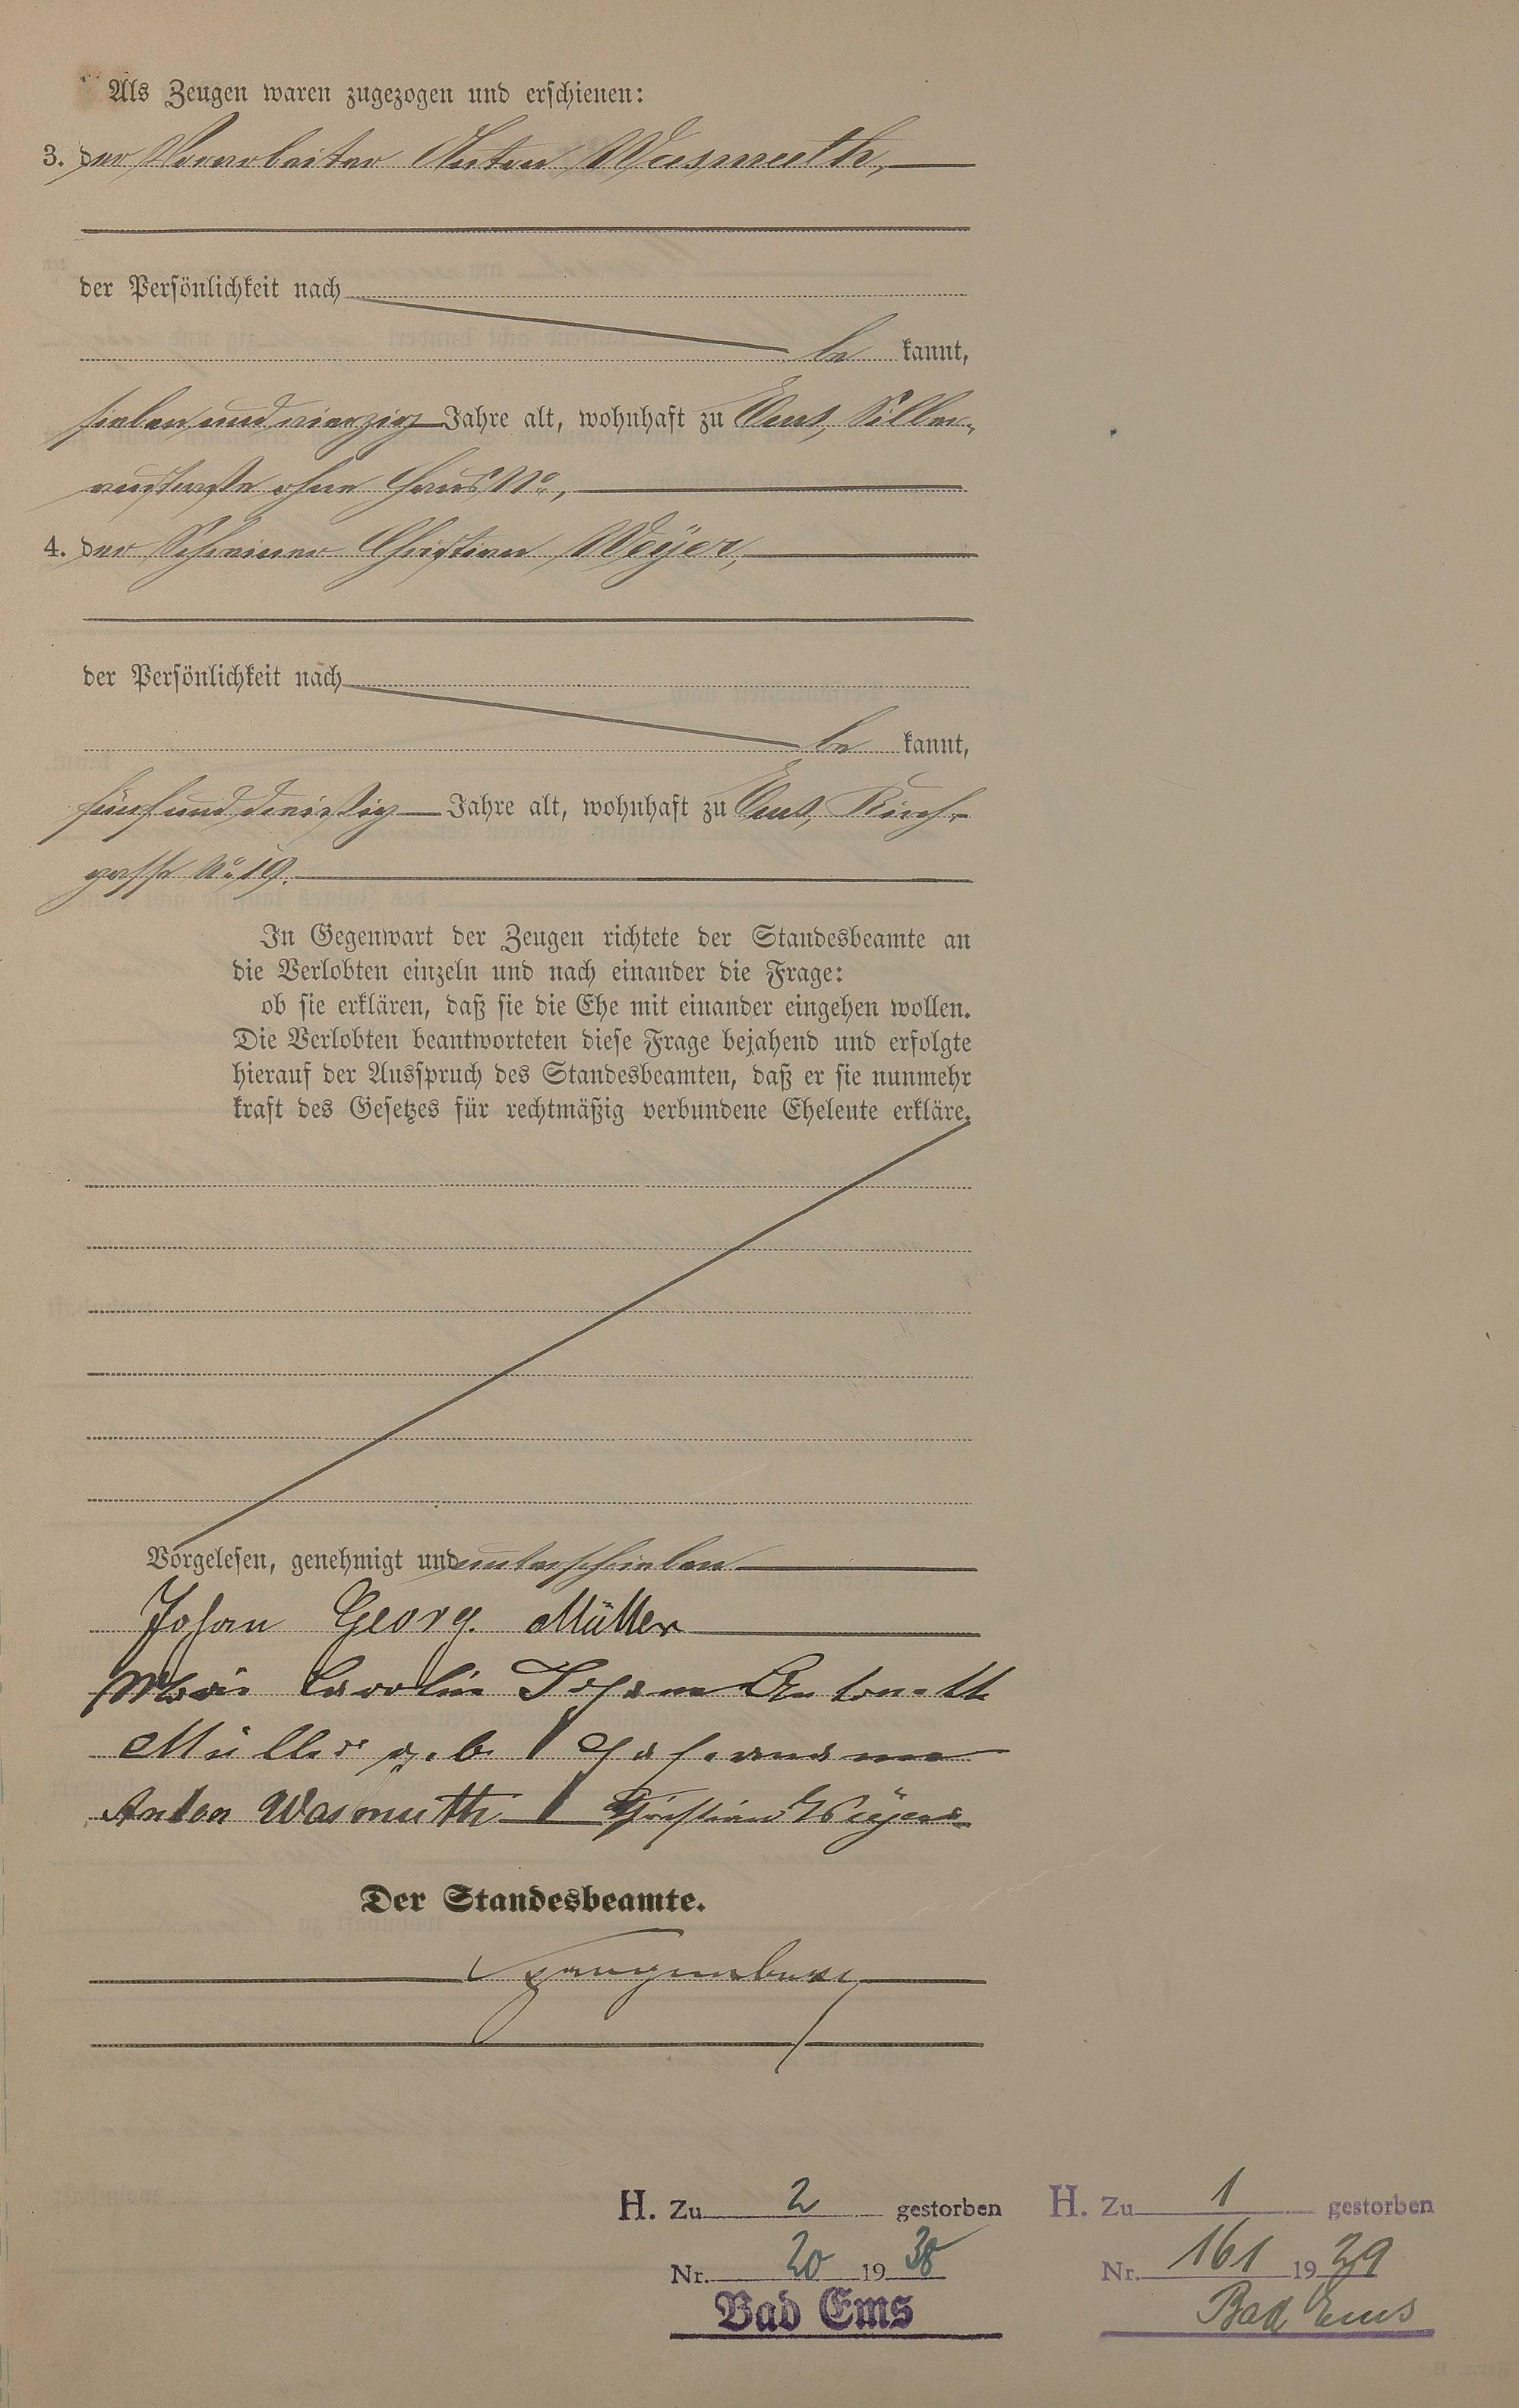 Als Zeugen waren zugezogen und erschienen:
3. der Vorarbeiter Anton Wasmuth,
der Persönlichkeit nach
be kannt,
siebenundvierzig Jahre alt, wohnhaft zu Ems, Silber-
austraße ohne Haus No,
4. der Schreiner Christian Weyer,
der Persönlichkeit nach
be kannt,
fünfunddreißig Jahre alt, wohnhaft zu Ems, Kirch-
gasse No 19.
In Gegenwart der Zeugen richtete der Standesbeamte an
die Verlobten einzeln und nach einander die Frage:
ob sie erklären, daß sie die Ehe mit einander eingehen wollen.
Die Verlobten beantworteten diese Frage bejahend und erfolgte
hierauf der Ausspruch des Standesbeamten, daß er sie nunmehr
kraft des Gesetzes für rechtmäßig verbundene Eheleute erkläre.
Vorgelesen, genehmigt und unterschrieben
Johan Georg Müller
Carolin Johanna
Müller geb
Anton Wasmuth Christian Weyer
Der Standesbeamte.
Spangenberg
H. Zu 2 gestorben
Nr. 20 1938
Bad Ems
H. Zu 1 gestorben
Nr. 161 1929
Bad Ems